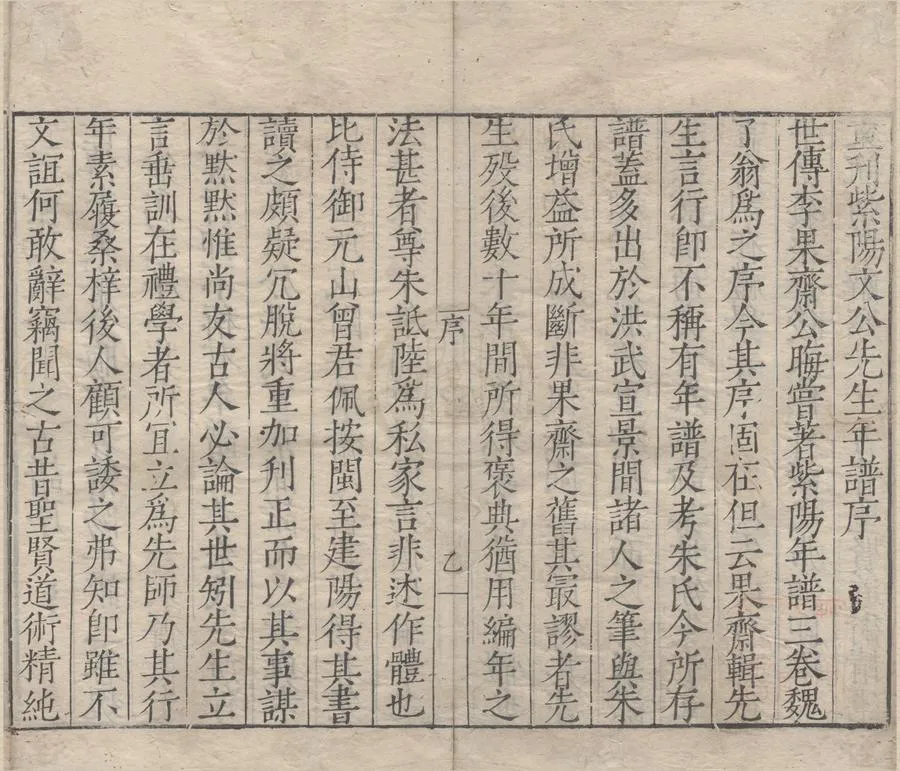 重刋紫陽文公先生年譜序
世傳李果齋公晦嘗著紫陽年譜三卷魏
了翁爲之序今其序固在但云果齋輯先
生言行卽不稱有年譜及考朱氏今所存
譜蓋多出於洪武宣景間諸人之筆與朱
氏增益所成斷非果齋之舊其最謬者先
生歿後數十年間所得褒典猶用編年之
序 乙一
法甚者尊朱詆陸爲私家言非述作體也
比侍御元山曾君佩按閩至建陽得其書
讀之頗疑冗脫將重加刋正而以其事謀
於默默惟尚友古人必論其世矧先生立
言垂訓在禮學者所宜立爲先師乃其行
年素履桑梓後人顧可諉之弗知卽雖不
文誼何敢辭竊聞之古昔聖賢道術精純